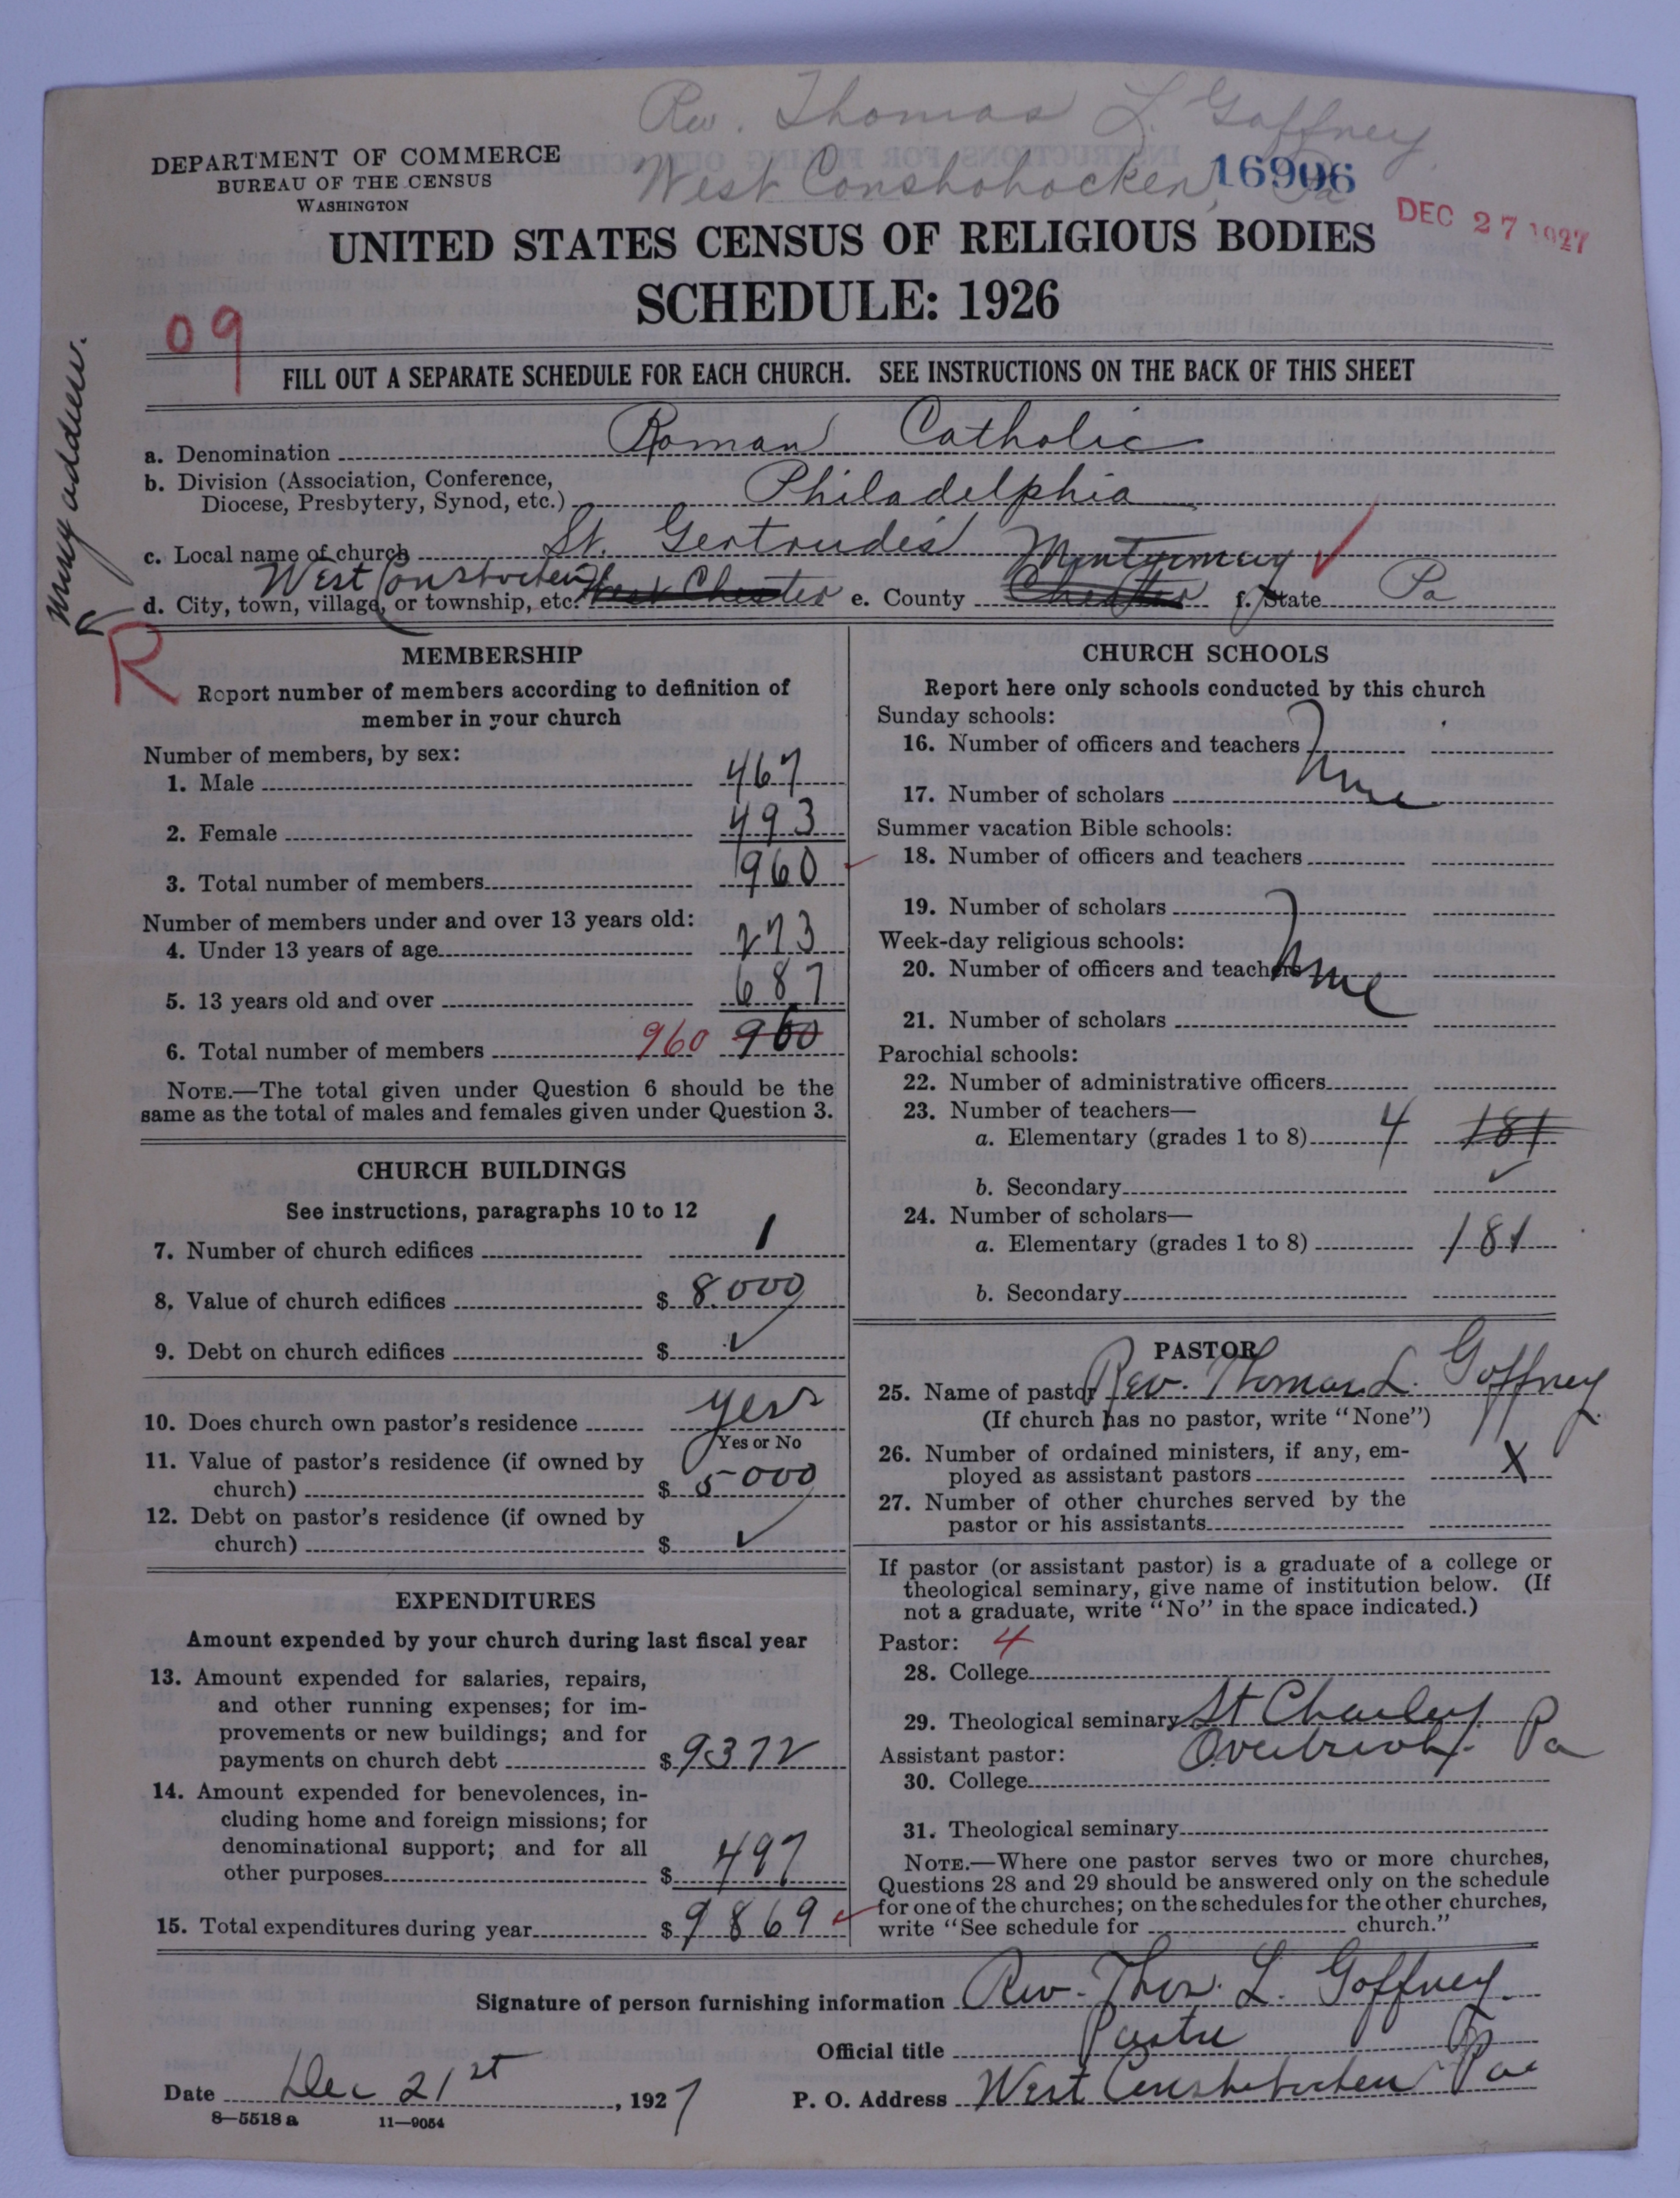 Rev. Thomas L. Gaffney
West Conshohocken, Pa
16906
DEC 27 1927
DEPARTMENT OF COMMERCE
BUREAU OF THE CENSUS
WASHINGTON
UNITED STATES CENSUS OF RELIGIOUS BODIES
SCHEDULE: 1926
09
FILL OUT A SEPARATE SCHEDULE FOR EACH CHURCH. SEE INSTRUCTIONS ON THE BACK OF THIS SHEET
a. Denomination Roman Catholic
b. Division (Association, Conference,
Diocese, Presbytery, Synod, etc.) Philadelphia
c. Local name of church St. Gertrudes
West Conshohocken Montgomery
d. City, town, village, or township, etc. West Chester e. County Chester f. State Pa
wrong address.
R
MEMBERSHIP
Report number of members according to definition of
member in your church
Number of members, by sex:
1. Male 467
2. Female 493
3. Total number of members 960
Number of members under and over 13 years old:
4. Under 13 years of age 273
5. 13 years old and over 687
6. Total number of members 960 960
NOTE.—The total given under Question 6 should be the
same as the total of males and females given under Question 3.
CHURCH BUILDINGS
See instructions, paragraphs 10 to 12
7. Number of church edifices 1
8. Value of church edifices $ 8.000
9. Debt on church edifices $ ✓
10. Does church own pastor's residence yes
Yes or No
11. Value of pastor's residence (if owned by
church) $ 5000
12. Debt on pastor's residence (if owned by
church) $ ✓
EXPENDITURES
Amount expended by your church during last fiscal year
13. Amount expended for salaries, repairs,
and other running expenses; for im-
provements or new buildings; and for
payments on church debt $ 9372
14. Amount expended for benevolences, in-
cluding home and foreign missions; for
denominational support; and for all
other purposes $ 497
15. Total expenditures during year $ 9869
CHURCH SCHOOLS
Report here only schools conducted by this church
Sunday schools:
16. Number of officers and teachers
None
17. Number of scholars
Summer vacation Bible schools:
18. Number of officers and teachers
19. Number of scholars
Week-day religious schools:
20. Number of officers and teachers None
21. Number of scholars
Parochial schools:
22. Number of administrative officers
23. Number of teachers—
a. Elementary (grades 1 to 8) 4 181
b. Secondary ✓
24. Number of scholars—
a. Elementary (grades 1 to 8) 181
b. Secondary
PASTOR
25. Name of pastor Rev. Thomas L. Gaffney
(If church has no pastor, write "None")
26. Number of ordained ministers, if any, em-
ployed as assistant pastors X
27. Number of other churches served by the
pastor or his assistants
If pastor (or assistant pastor) is a graduate of a college or
theological seminary, give name of institution below. (If
not a graduate, write "No" in the space indicated.)
Pastor: 4
28. College
29. Theological seminary St Charles
Assistant pastor: Overbrook. Pa
30. College
31. Theological seminary
NOTE.—Where one pastor serves two or more churches,
Questions 28 and 29 should be answered only on the schedule
for one of the churches; on the schedules for the other churches,
write "See schedule for church."
Signature of person furnishing information Rev. Thos. L. Gaffney.
Official title Pastor
Date Dec 21st, 1927 P. O. Address West Conshohocken Pa
8—5518 a 11—9054